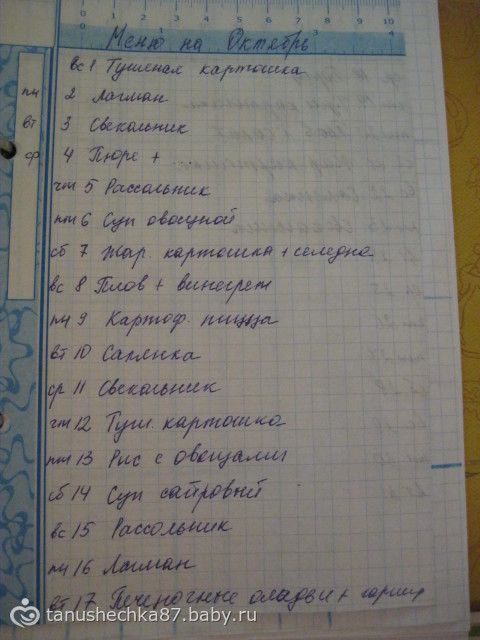 0 1 2 3 4 5 6 7 8 9 10
Меню на Октябрь
вс 1 Тушеная картошка
пн 2 Лагман
вт 3 Свекольник
ср 4 Пюре + ...
чт 5 Рассольник
пт 6 Суп овощной
сб 7 Жар. картошка + селедка
вс 8 Плов + винегрет
пн 9 Картоф. пицца
вт 10 Салянка
ср 11 Свекольник
чт 12 Туш. картошка
пт 13 Рис с овощами
сб 14 Суп сайровый
вс 15 Рассольник
пн 16 Лагман
вт 17 Печеночные оладьи + гарнир
tanushechka87.baby.ru